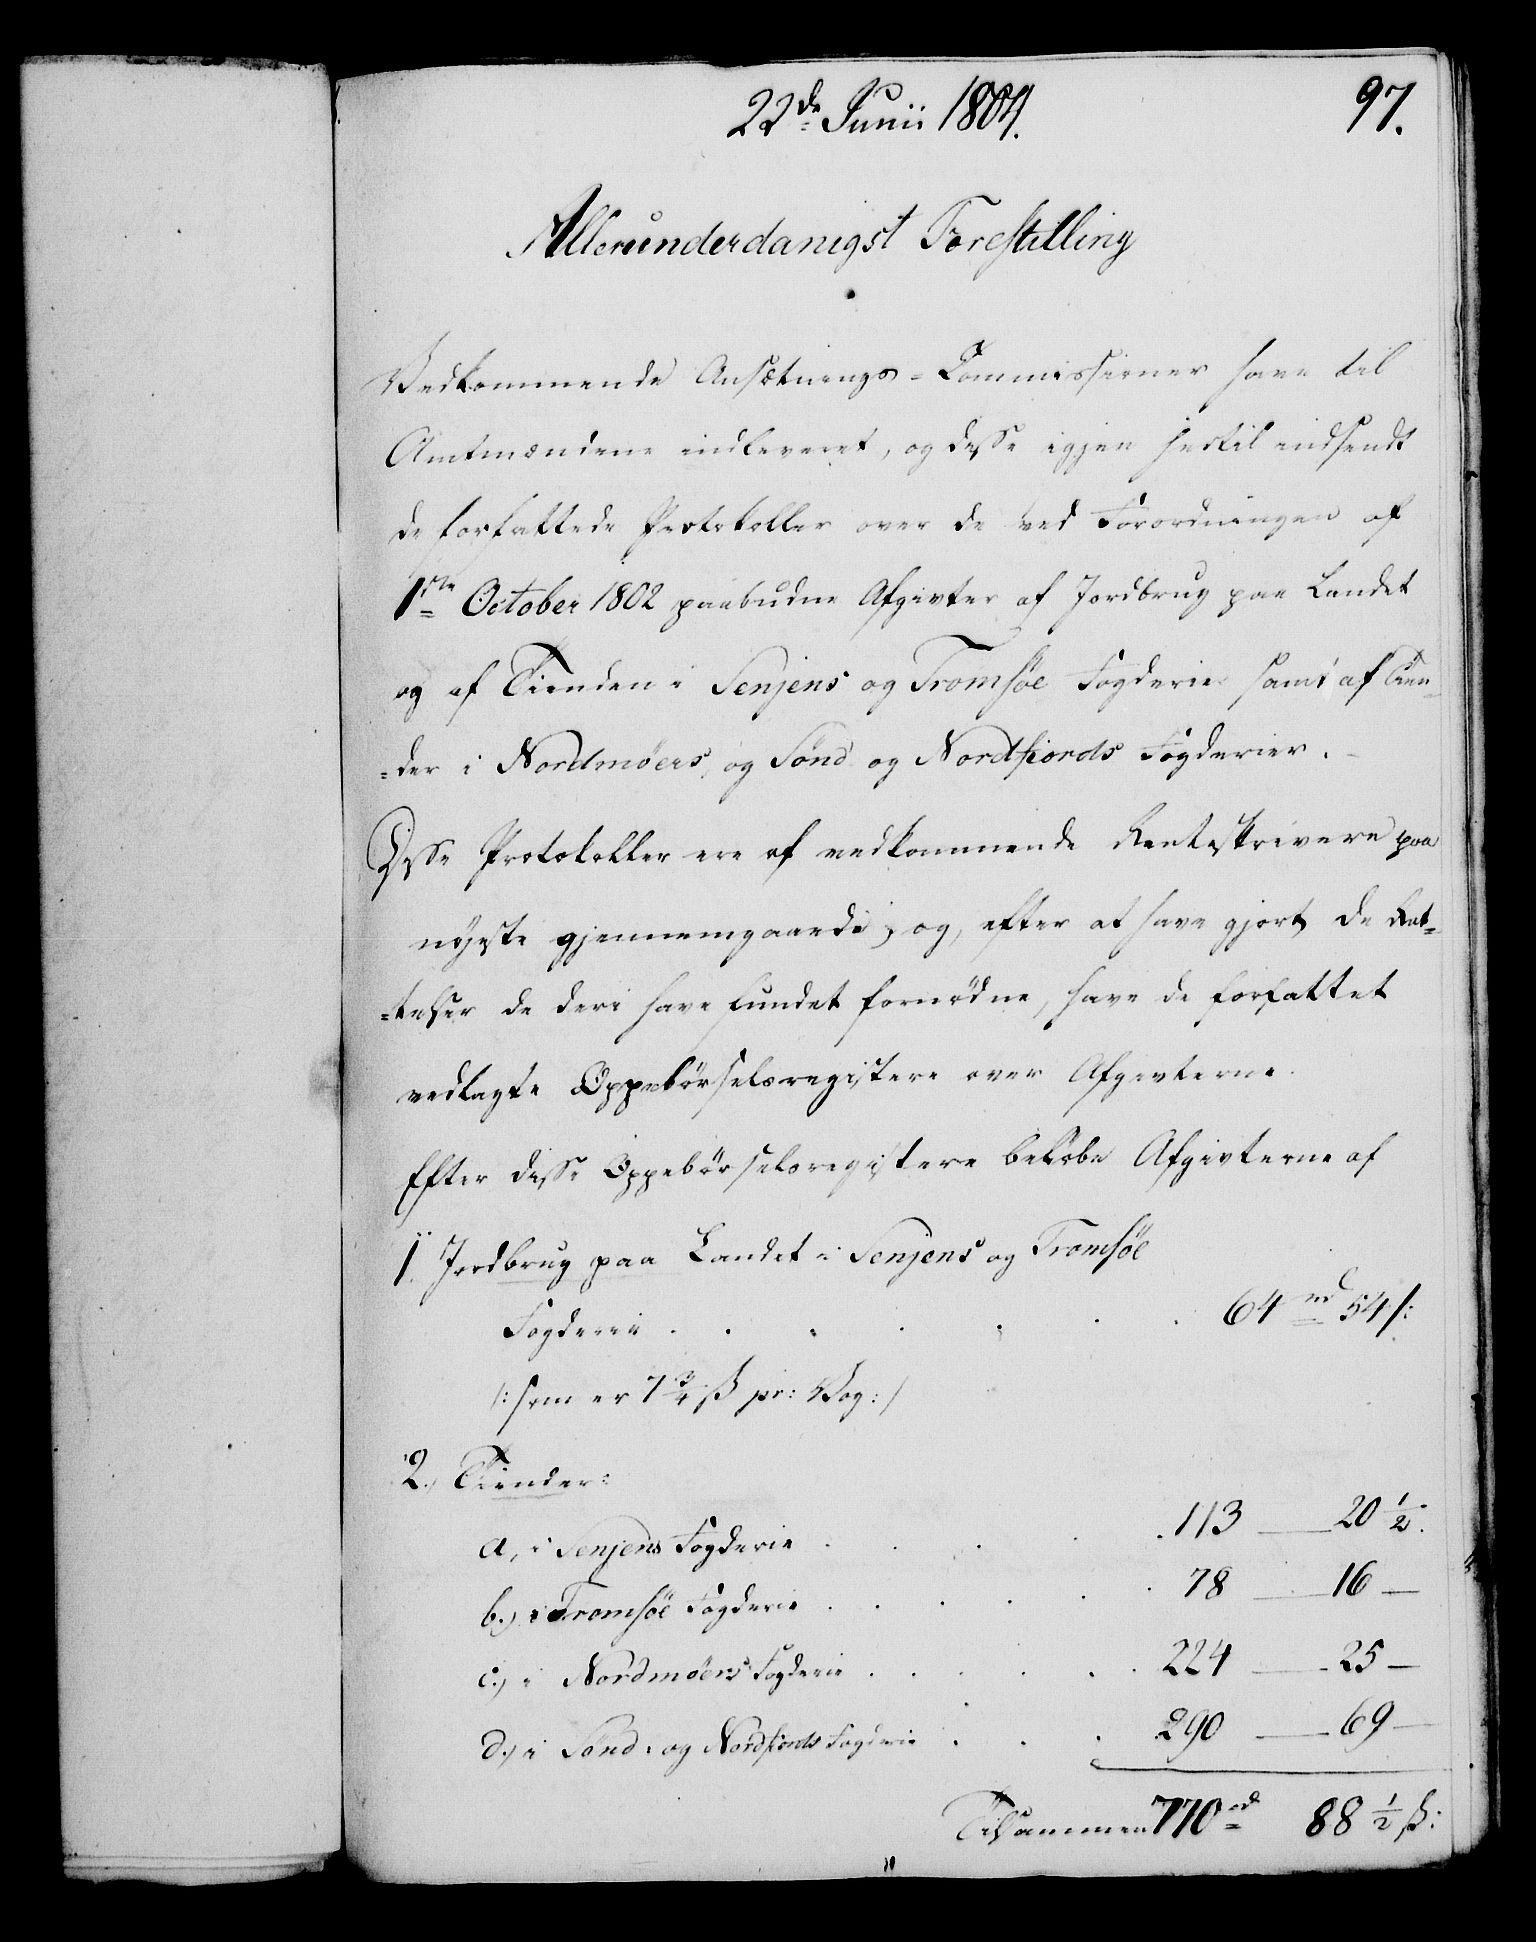 22de Junii 1804.
97.
Allerunderdanigst Forestilling
Vedkommende Ansætnings-Commissioner have til
Amtmændene indleveret, og disse igjen hertil indsendt
de forfattede Protokoller over de ved Forordningen af
1ste October 1802 paabudne Afgivter af Jordbrug paa Landet
og af Tienden i Senjens og Tromsøe Fogderie samt af Tien-
-der i Nordmøers og Sønd og Nordfiords Fogderier.
Disse Protokoller ere af vedkommende Renteskrivere paa
nøjeste gjennemgaaede; og, efter at have gjort de Ret-
-telser de deri have fundet fornødne, have de forfattet
vedlagte Oppebørselsregistere over Afgivterne.
Efter disse Oppebørselsregistere beløbe Afgivterne af
1. Jordbrug paa Landet i Senjens og Tromsøe
Fogderie . . . . . . . 64 rd 54 ß:
/: som er 7 3/4 ß pr: Vog :/
2. Tiender:
a, i Senjens Fogderie . . . . 113 — 20 1/2.
b.) i Tromsøe Fogderie . . . . . . 78 — 16 —
c.) i Nordmøers Fogderie . . . . . . 224 — 25 —
d.) i Sønd- og Nordfiords Fogderie . . . 290 — 69 —
Tilsammen 770 rd 88 1/2 ß: